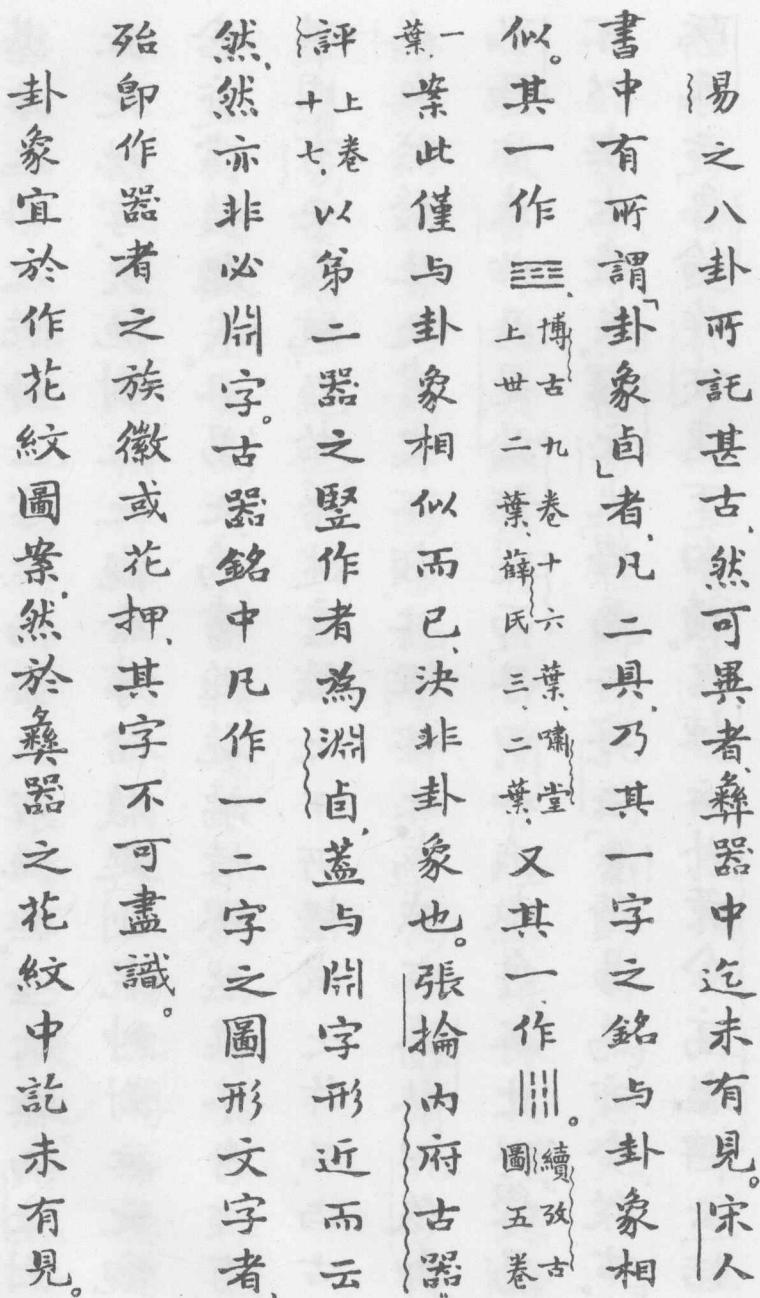 易之八卦所託甚古、然可異者、彝器中迄未有見。宋人
書中有所謂「卦象卣」者、凡二具、乃其一字之銘与卦象相
似。其一作𝌆、博古九卷十六葉、嘯堂上世二葉、薛氏三、二葉、又其一作||||。續攷古圖五卷
一葉、案此僅与卦象相似而已、決非卦象也。張掄內府古器
評上卷十七、以第二器之竪作者為淵卣、蓋与𣶒字形近而云
然、然亦非必𣶒字。古器銘中凡作一二字之圖形文字者、
殆即作器者之族徽或花押、其字不可盡識。
卦象宜於作花紋圖案、然於彝器之花紋中訖未有見。